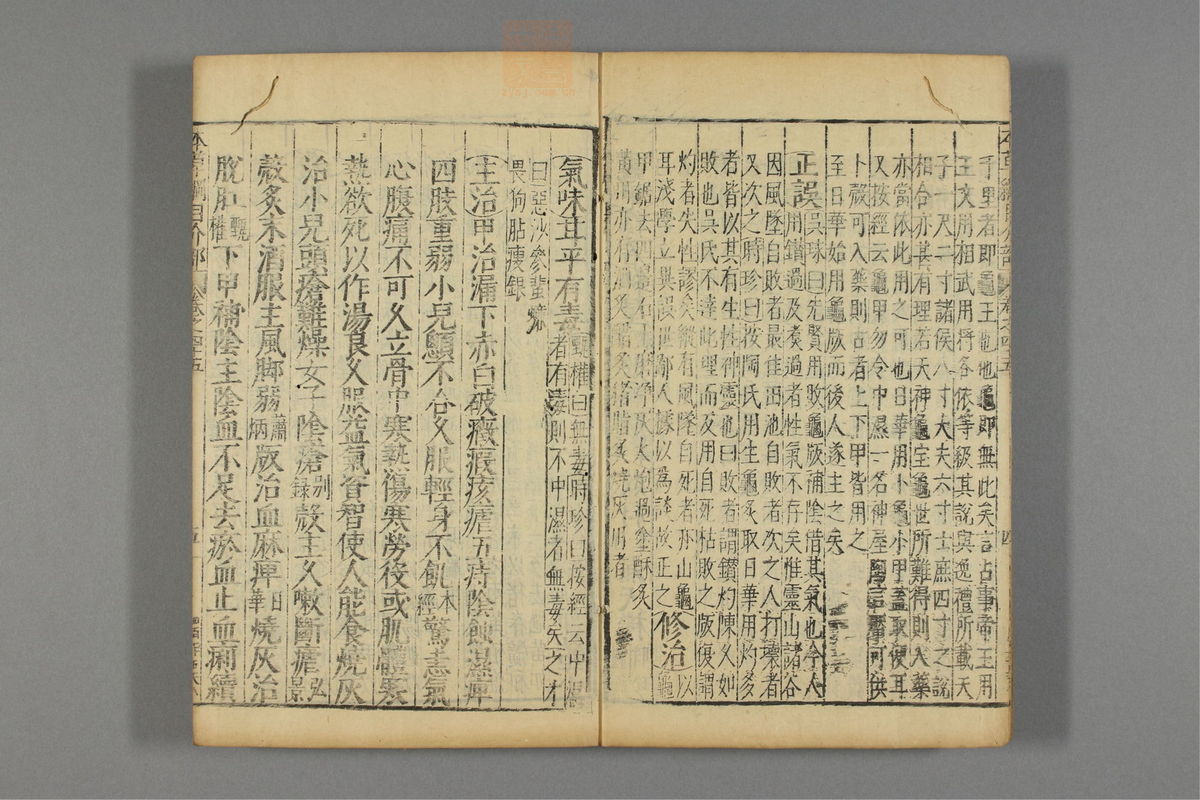 千里者即龜王也他龜即無此矣言占事帝王用
王文用相武用將各依等級其說與逸禮所載天
子一尺二寸諸侯八寸大夫六寸士庶四寸之說
相合亦甚有理若天神龜寶龜世所難得則入藥
亦當依此用之可也日華用卜龜小甲蓋取便耳
又按經云龜甲勿令中濕一名神屋陶言可供
卜殼可入藥則古者上下甲皆用之
至日華始用龜版而後人遂主之矣
正誤 吳球曰先賢用敗龜版補陰借其氣也今人
用鑽過及煮過者性氣不存矣惟靈山諸谷
因風墜自敗者最佳田池自敗者次之人打壞者
又次之時珍曰按陶氏用生龜炙取日華用灼多
者皆以其有生性神靈也曰敗者謂鑽灼陳久如
敗也吳氏不達此理而反用自死枯敗之版復謂
灼者失性謬矣縱有風墜自死者亦山龜
耳淺學立異誤世鄙人據以為談故正之 修治 以龜
甲鋸去四邊石上磨淨灰火炮過塗酥炙
黃用亦有酒炙醋炙豬脂炙燒灰用者
氣味 甘平有毒 甄權曰無毒時珍曰按經云中濕
者有毒則不中濕者無毒矣之才
曰惡沙參蜚蠊
畏狗膽瘦銀
主治 甲治漏下赤白破癥瘕痎瘧五痔陰蝕濕痺
四肢重弱小兒顖不合久服輕身不飢 本經 驚恚氣
心腹痛不可久立骨中寒熱傷寒勞役或肌體寒
熱欲死以作湯良久服益氣資智使人能食燒灰
治小兒頭瘡難燥女子陰瘡 別錄 殼主久嗽斷瘧 弘景
殼炙末酒服主風腳弱 蕭炳 版治血麻痺 日華 燒灰治
脫肛 甄權 下甲補陰主陰血不足去瘀血止血痢續